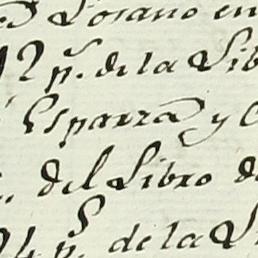 Losano en
12 p.s de la Lib
Esparza y
del Libro de
24 p.s de la L